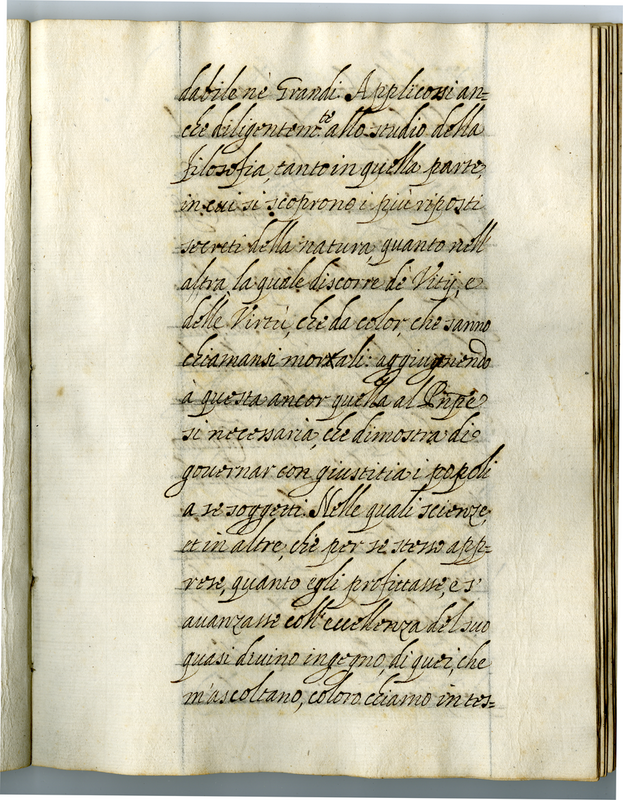 dabile nè Grandi. Applicossi an=
che diligentem.te allo studio della
filosofia, tanto in quella parte,
in cui si scoprono i più riposti
secreti della natura, quanto nell'
altra, la quale discorre dè Vitij, e
delle Virtù, che da color, che sanno
chiamansi morali: aggiugnendo
à questa ancor quella al Pñpe
si necessaria, che dimostra di
governar con giustitia i popoli
a se soggetti. Nelle quali scienze,
et in altre, che per se stesso app=
rese, quanto egli profittasse, e s'
avanzasse coll'eccellenza del suo
quasi divino ingegno, di quei, che
m'ascoltano, coloro chiamo in tes=